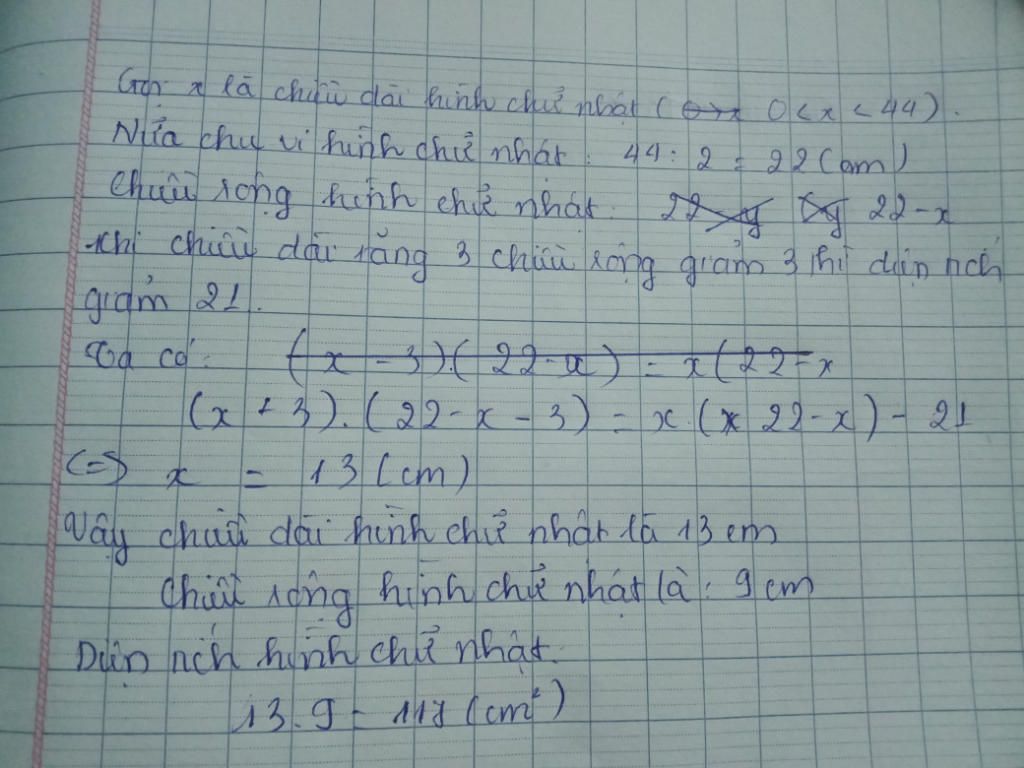 Gọi x là chiều dài hình chữ nhật ( 0 < x < 44).
Nửa chu vi hình chữ nhật: 44 : 2 = 22 (cm)
Chiều rộng hình chữ nhật: 22 - x
Khi chiều dài tăng 3 chiều rộng giảm 3 thì diện tích
giảm 21.
Ta có: (x - 3).(22 - x) = x(22 - x
(x + 3).(22 - x - 3) = x.(x 22 - x) - 21
(=) x = 13 (cm)
Vậy chiều dài hình chữ nhật là 13 cm
Chiều rộng hình chữ nhật là: 9 cm
Diện tích hình chữ nhật:
13.9 = 117 (cm²)